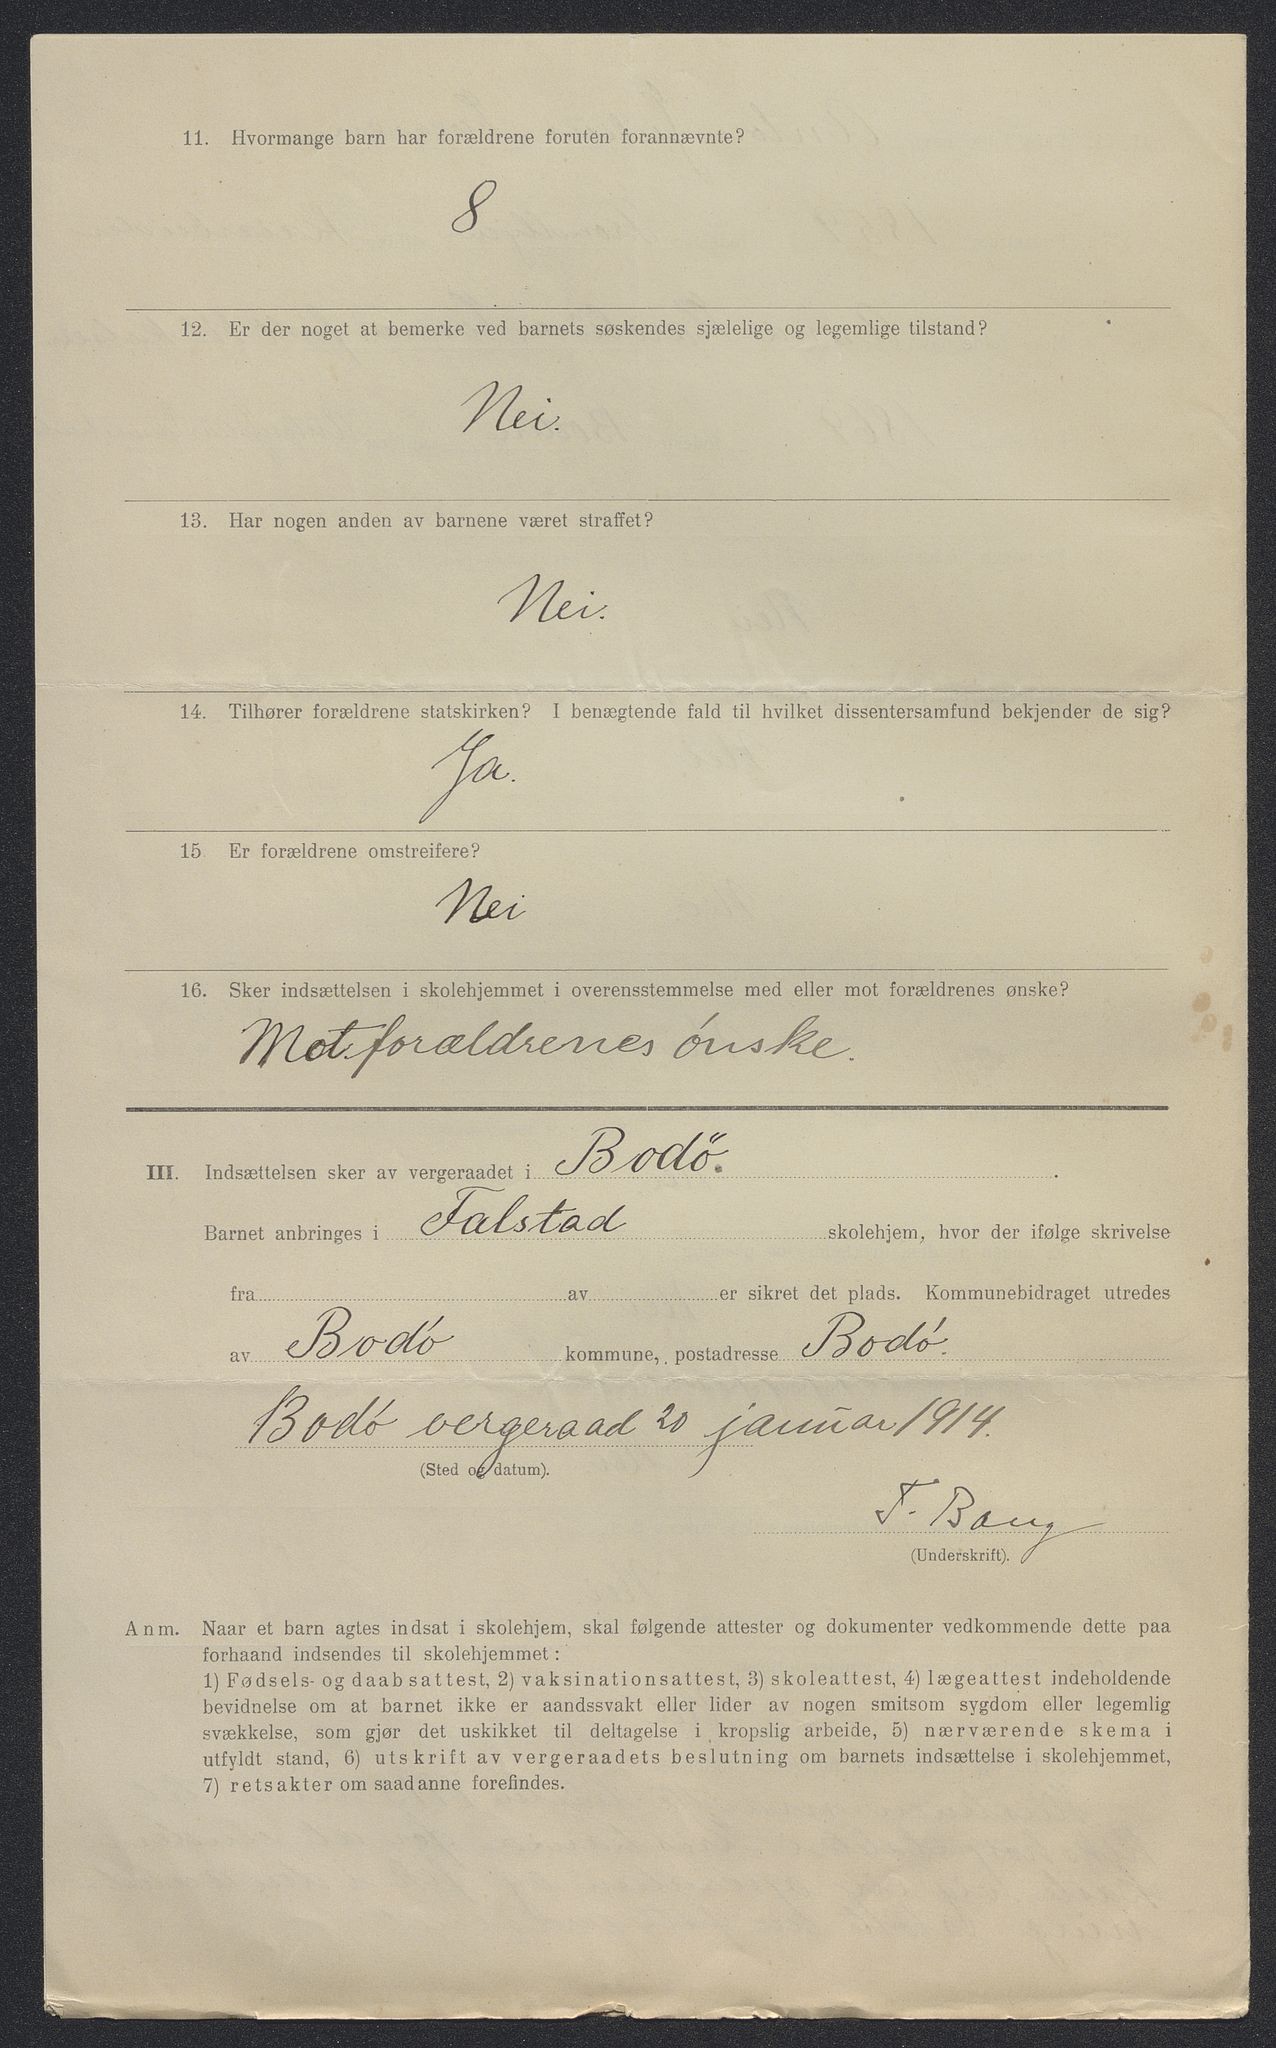 11. Hvormange barn har forældrene foruten forannævnte?
8
12. Er der noget at bemerke ved barnets søskendes sjælelige og legemlige tilstand?
Nei.
13. Har nogen anden av barnene været straffet?
Nei.
14. Tilhører forældrene statskirken? I benægtende fald til hvilket dissentersamfund bekjender de sig?
Ja.
15 Er forældrene omstreifere?
Nei
16. Sker indsættelsen i skolehjemmet i overensstemmelse med eller mot forældrenes ønske?
Mot forældrenes ønske.
III. Indsættelsen sker av vergeraadet i Bodø.
Barnet anbringes i Falstad skolehjem, hvor der ifølge skrivelse
fra av er sikret det plads. Kommunebidraget utredes
av Bodø kommune, postadresse Bodø.
Bodø vergeraad 20 januar 1914.
(Sted og datum).
F. Bang
(Underskrift).
Anm. Naar et barn agtes indsat i skolehjem, skal følgende attester og dokumenter vedkommende dette paa
forhaand indsendes til skolehjemmet:
1) Fødsels- og daabsattest, 2) vaksinationsattest, 3) skoleattest, 4) lægeattest indeholdende
bevidnelse om at barnet ikke er aandssvakt eller lider av nogen smitsom sygdom eller legemlig
svækkelse, som gjør det uskikket til deltagelse i kropslig arbeide, 5) nærværende skema i
utfyldt stand, 6) utskrift av vergeraadets beslutning om barnets indsættelse i skolehjemmet,
7) retsakter om saadanne forefindes.